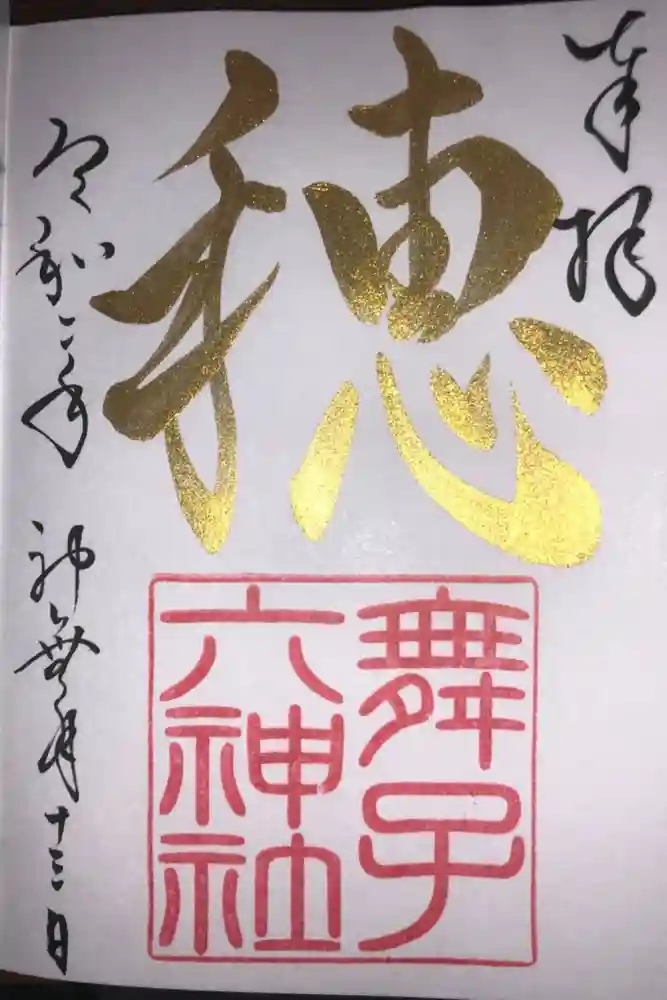 奉拝
穂
舞子
六神社
令和二年 神無月十三日